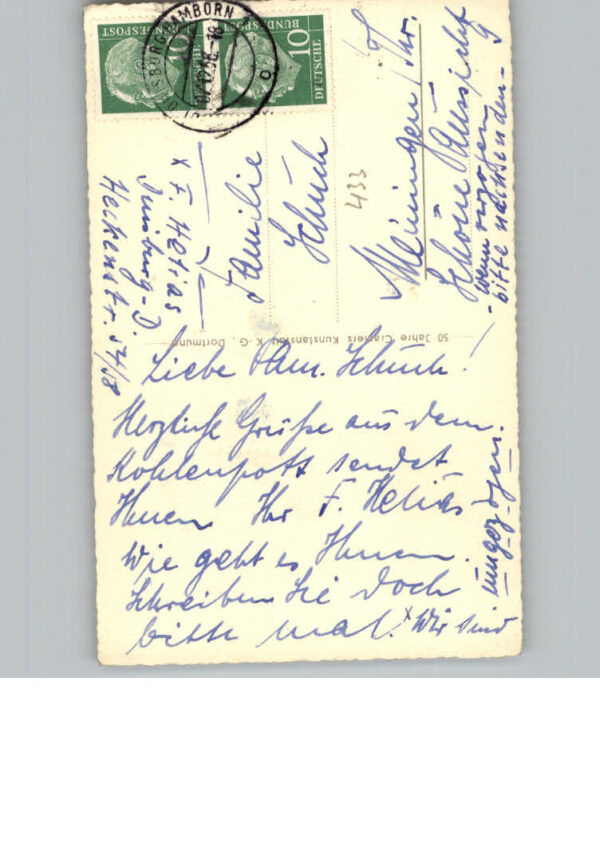 DUISBURG-HAMBORN
10
DEUTSCHE
BUNDESPOST
10
DEUTSCHE
BUNDESPOST
x F. Helias
Duisburg-
Heckenstr. 54/58
Familie
Schuch
433
Meiningen/Thür.
Schöne Aussicht 9
- wenn verzogen
bitte nachsenden -
50 Jahre Cramers Kunstanstalt K.-G., Dortmund
Liebe Fam. Schuch!
Herzliche Grüße aus dem
Kohlenpott sendet
Ihnen Ihr F. Helias
Wie geht es Ihnen.
Schreiben Sie doch
bitte mal. x Wir sind
umgezogen.